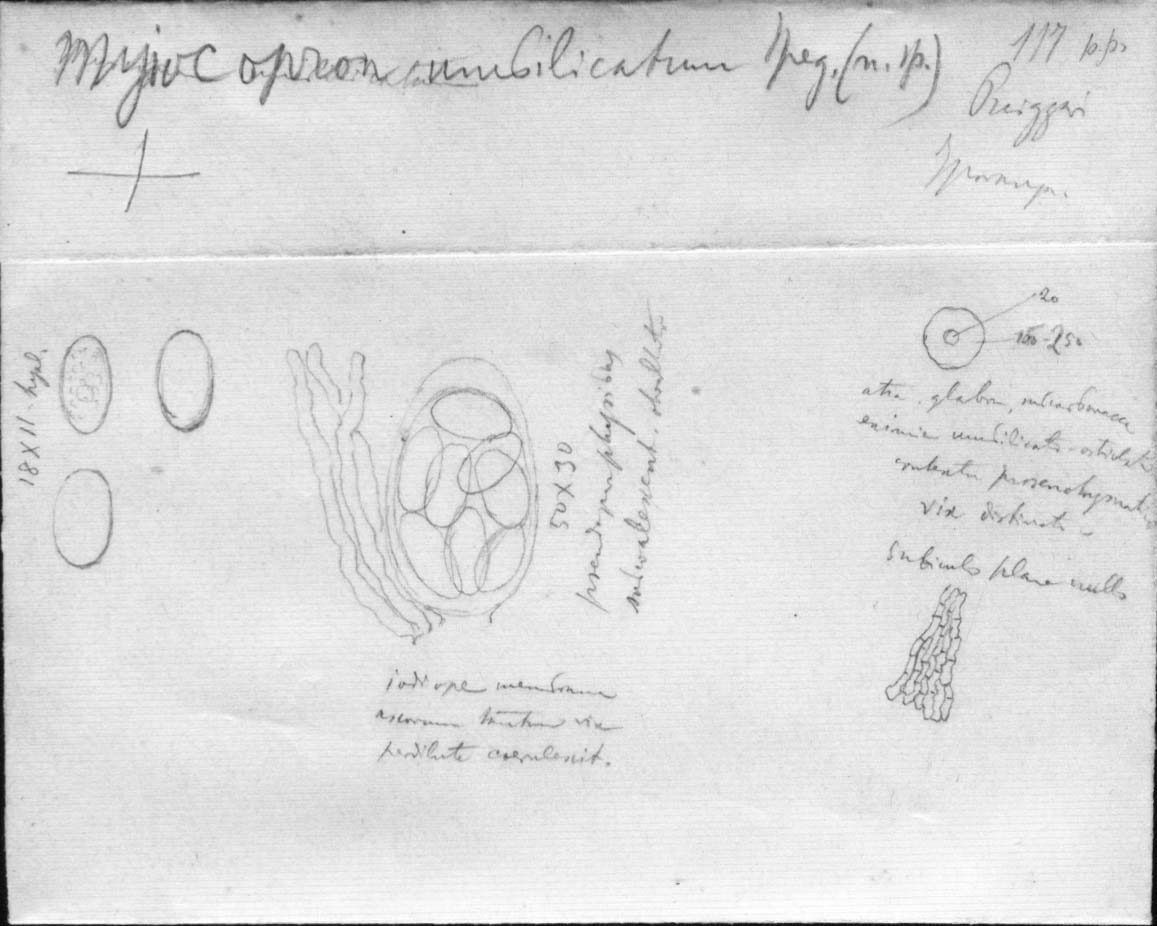 Myiocopron umbilicatum Speg. (n. sp.)
117 p.p.
Puiggari
18 X 11 hyal.
50 X 30
pseudoparaphysibus
subcoalescent.
iodi ope membrana
ascorum tantum vix
perdilute coerulescit.
20
150-250
atra, glabra, subcarbonacea
eximie umbilicato-ostiolata
contextu prosenchymatic
vix distincto
Subiculo plane nullo